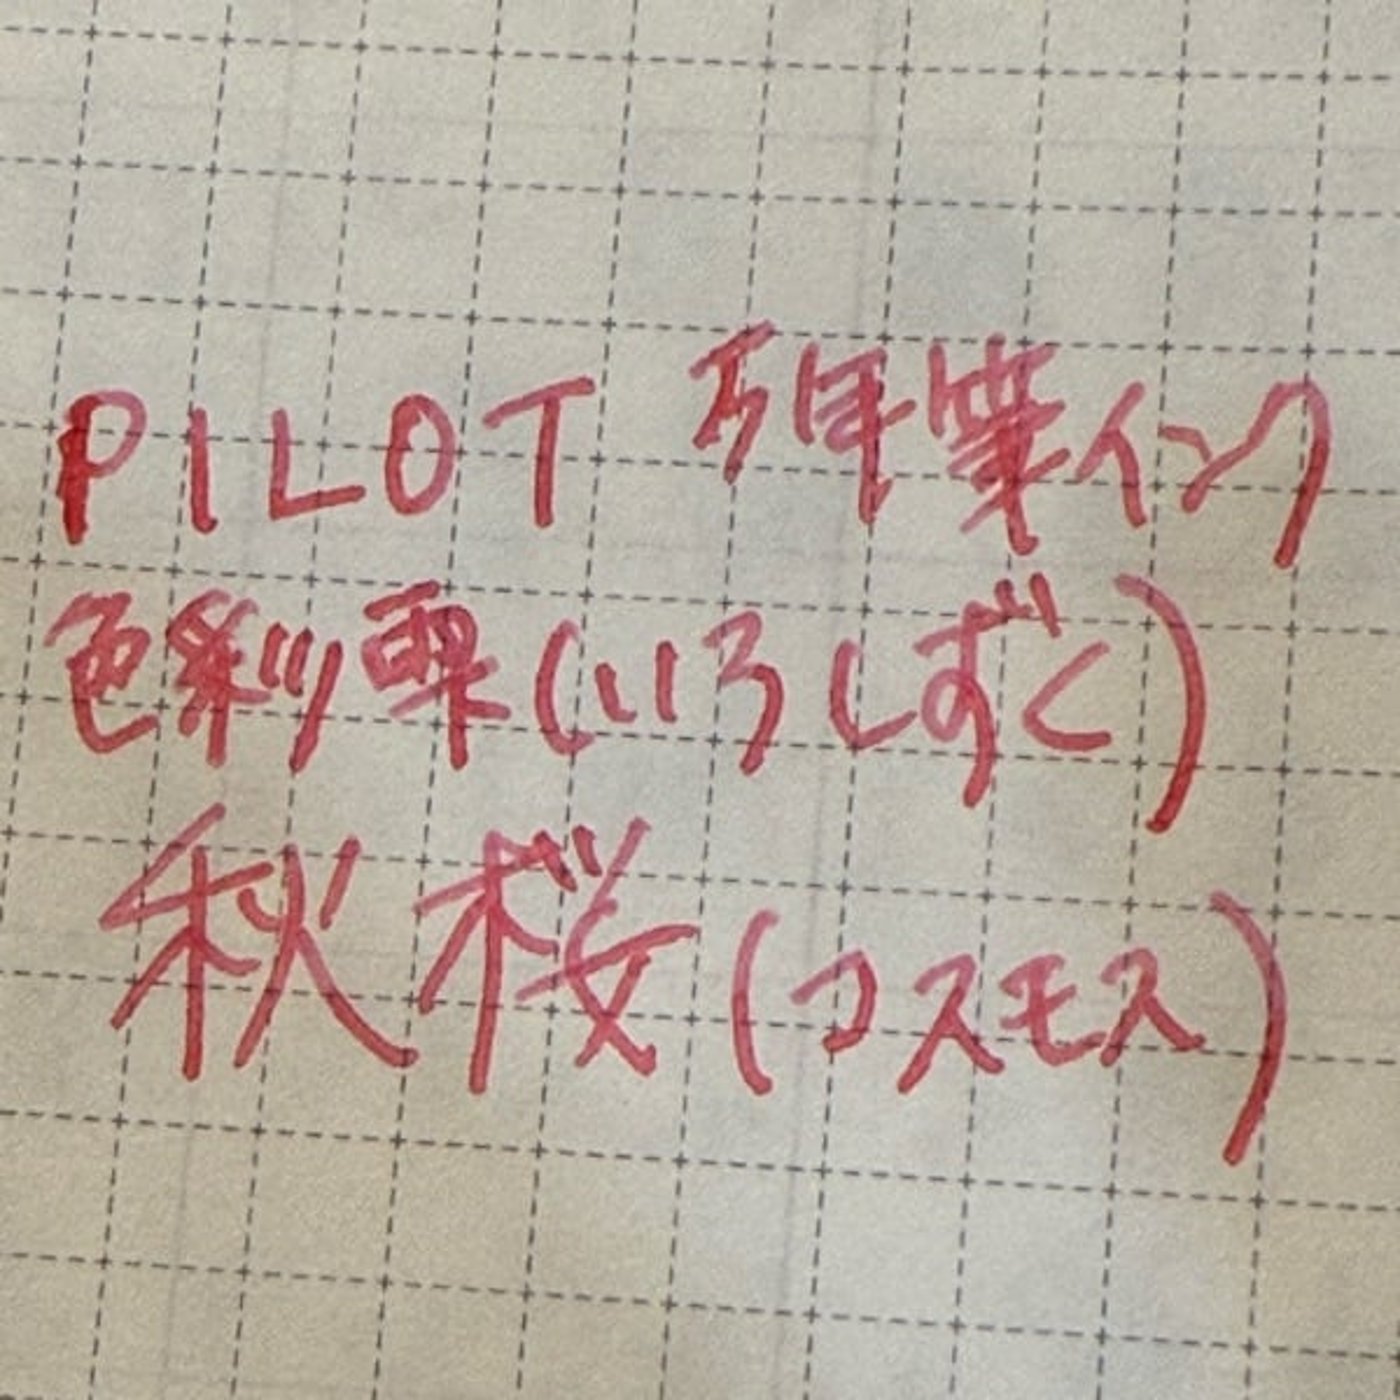 PILOT 万年筆インク
色彩雫(いろしずく)
秋桜(コスモス)